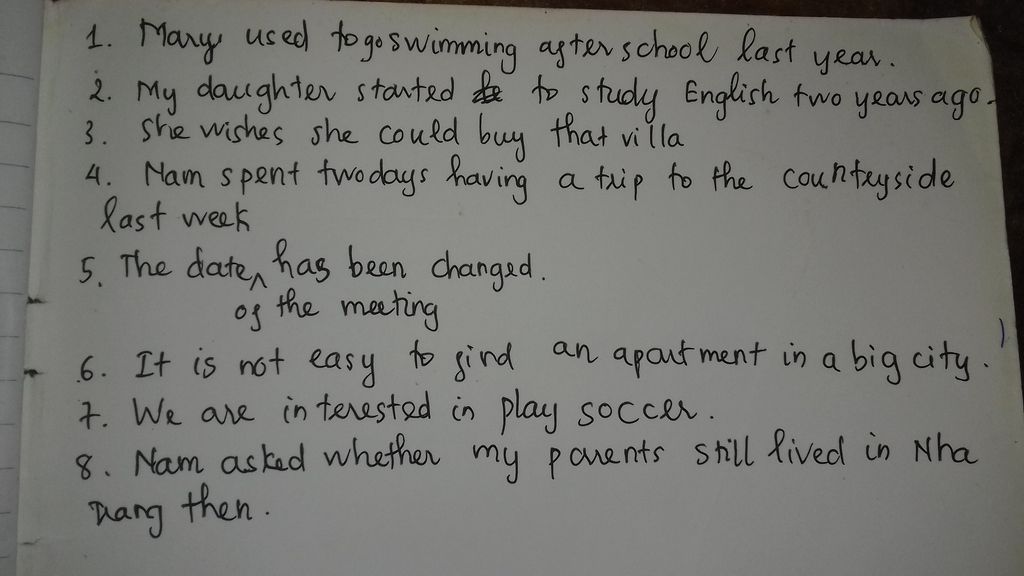 1. Mary used to go swimming after school last year.
2. My daughter started to study English two years ago.
3. She wishes she could buy that villa
4. Nam spent two days having a trip to the countryside
last week
5. The date ^ has been changed.
of the meeting
6. It is not easy to find an apartment in a big city.
7. We are interested in play soccer.
8. Nam asked whether my parents still lived in Nha
Trang then.